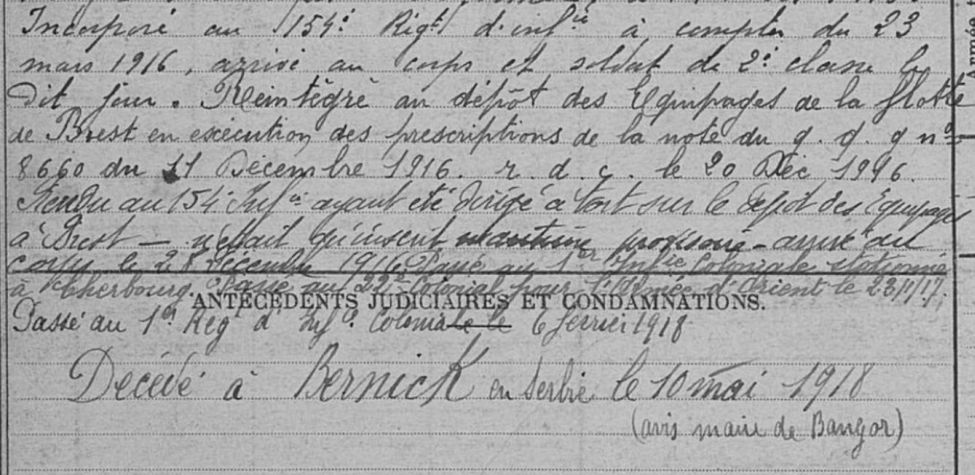 Incorporé au 154è Rigt d'infie à compter du 23
mars 1916, arrivé au corps et soldat de 2è classe le
dit jour. Réintégré au dépôt des Equipages de la flotte
de Brest en exécution des prescriptions de la note du g. q. g no
8660 du 11 Décembre 1916. r. d. c. le 20 Déc 1916.
Rendu au 154 Infie ayant été dirigé à tort sur le dépôt des Equipages
à Brest — n'était qu'inscrit maritime provisoire - arrivé au
corps le 28 décembre 1916 Passé au 1er Infie Coloniale stationné
à Cherbourg. Passé au 22è Colonial pour l'Armée d'Orient le 23/1/17,
ANTÉCÉDENTS JUDICIAIRES ET CONDAMNATIONS.
Passé au 1er Reg d'Infie Coloniale le 6 février 1918
Décédé à Bernick en Serbie le 10 mai 1918
(avis maire de Bangor)